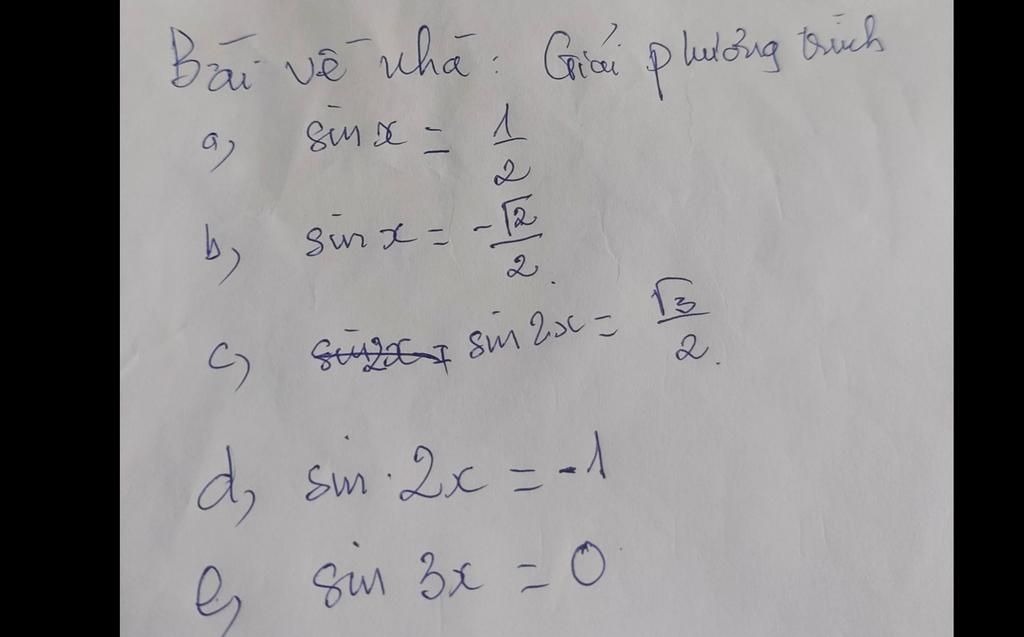 Bài về nhà: Giải phương trình
a, sin x = 1/2
b, sin x = -√2/2.
c, sin 2x = √3/2.
d, sin 2x = -1
e, sin 3x = 0